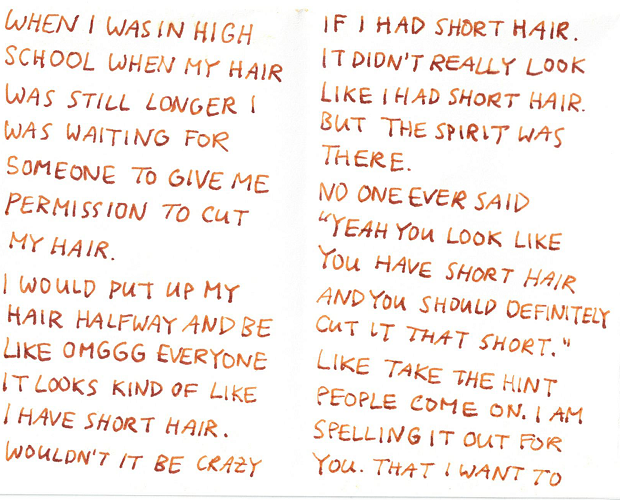 WHEN I WAS IN HIGH
SCHOOL WHEN MY HAIR
WAS STILL LONGER I
WAS WAITING FOR
SOMEONE TO GIVE ME
PERMISSION TO CUT
MY HAIR.
I WOULD PUT UP MY
HAIR HALFWAY AND BE
LIKE OMGGG EVERYONE
IT LOOKS KIND OF LIKE
I HAVE SHORT HAIR.
WOULDN'T IT BE CRAZY
IF I HAD SHORT HAIR.
IT DIDN'T REALLY LOOK
LIKE I HAD SHORT HAIR.
BUT THE SPIRIT WAS
THERE.
NO ONE EVER SAID
"YEAH YOU LOOK LIKE
YOU HAVE SHORT HAIR
AND YOU SHOULD DEFINITELY
CUT IT THAT SHORT."
LIKE TAKE THE HINT
PEOPLE COME ON. I AM
SPELLING IT OUT FOR
YOU. THAT I WANT TO